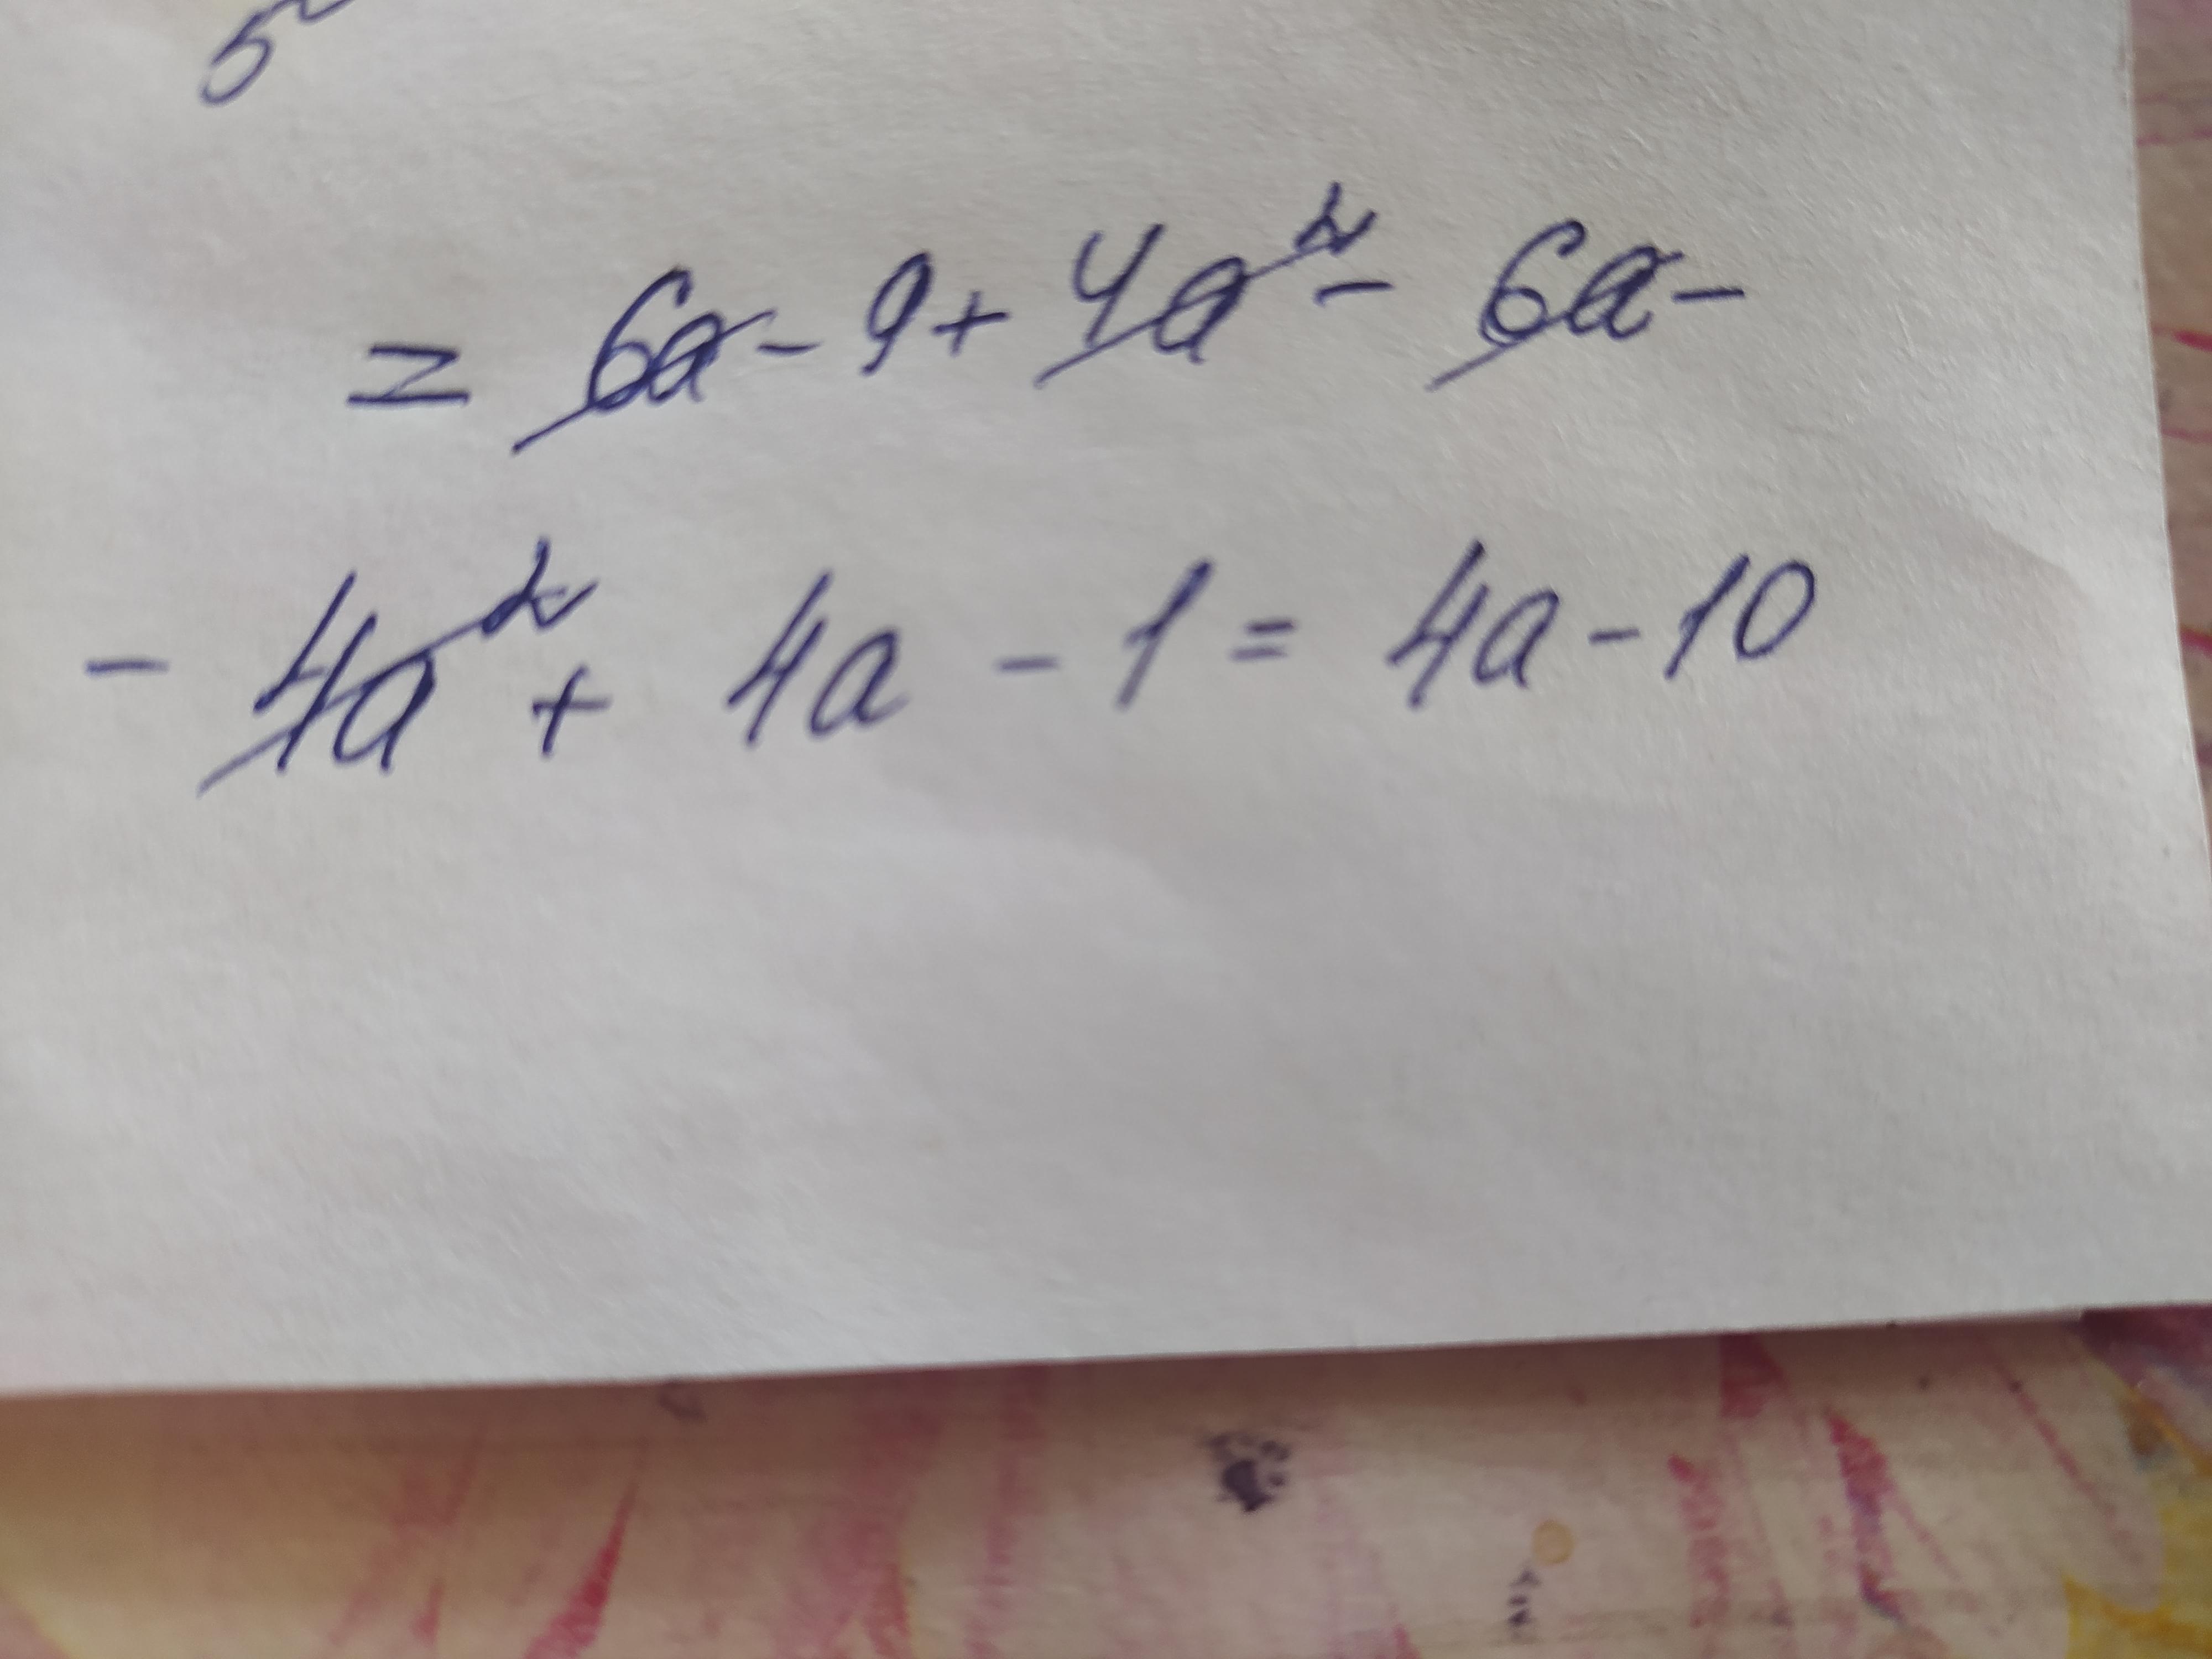 5
= 6a - 9 + 4a² - 6a -
- 4a² + 4a - 1 = 4a - 10